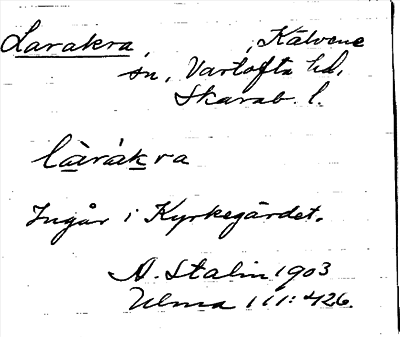 Larakra, , Kälvene
sn, Vartofta hd,
Skarab. l.
làrákra
Ingår i Kyrkegärdet.
A. Stalin 1903
Ulma 111:426.